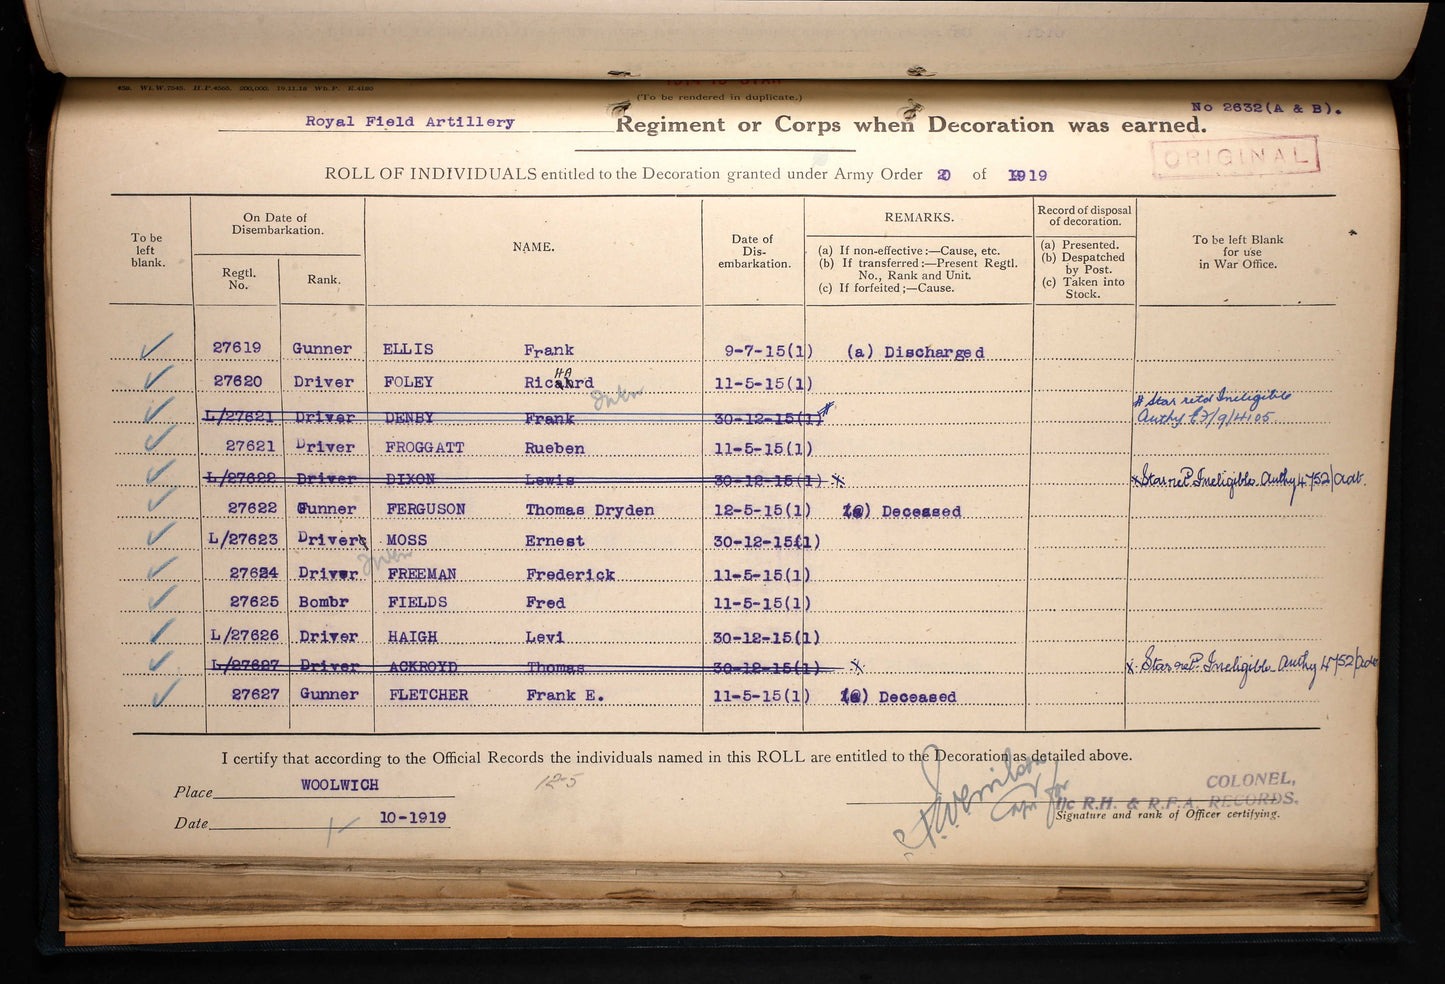 458. Wt. W.7545. H.P.4565. 200,000. 19.11.18 Wh.P. E.4180
(To be rendered in duplicate.)
No 2632(A & B).
Royal Field Artillery Regiment or Corps when Decoration was earned.
ORIGINAL
ROLL OF INDIVIDUALS entitled to the Decoration granted under Army Order 20 of 1919
To be left blank.
On Date of Disembarkation.
Regtl. No.
Rank.
NAME.
Date of Dis-embarkation.
REMARKS.
(a) If non-effective :—Cause, etc.
(b) If transferred :—Present Regtl. No., Rank and Unit.
(c) If forfeited ;—Cause.
Record of disposal of decoration.
(a) Presented.
(b) Despatched by Post.
(c) Taken into Stock.
To be left Blank for use in War Office.
27619 Gunner ELLIS Frank 9-7-15(1) (a) Discharged
27620 Driver FOLEY Richard 11-5-15(1)
L/27621 Driver DENBY Frank 30-12-15(1) # # Star retd Ineligible
27621 Driver FROGGATT Rueben 11-5-15(1)
L/27622 Driver DIXON Lewis 30-12-15(1) x x Star retd Ineligible Authy 4752/Adt.
27622 Gunner FERGUSON Thomas Dryden 12-5-15(1) (a) Deceased
L/27623 Driver MOSS Ernest 30-12-15(1)
27624 Driver FREEMAN Frederick 11-5-15(1)
27625 Bombr FIELDS Fred 11-5-15(1)
L/27626 Driver HAIGH Levi 30-12-15(1)
L/27627 Driver ACKROYD Thomas 30-12-15(1) x x Star retd Ineligible Authy 4752/Adt
27627 Gunner FLETCHER Frank E. 11-5-15(1) (a) Deceased
I certify that according to the Official Records the individuals named in this ROLL are entitled to the Decoration as detailed above.
Place WOOLWICH
12-5
COLONEL,
i/c R.H. & R.F.A. RECORDS.
Date 10-1919
Signature and rank of Officer certifying.